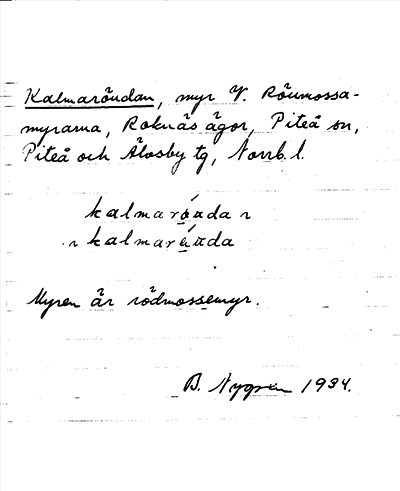 Kalmaröudan, myr V. Röumossa-
myrarna, Roknäs ägor, Piteå sn,
Piteå och Älvsby tg, Norrb. l.
kalmarö́uda n
n kalmarö́uda
Myren är rödmossemyr.
B. Nygren 1934.